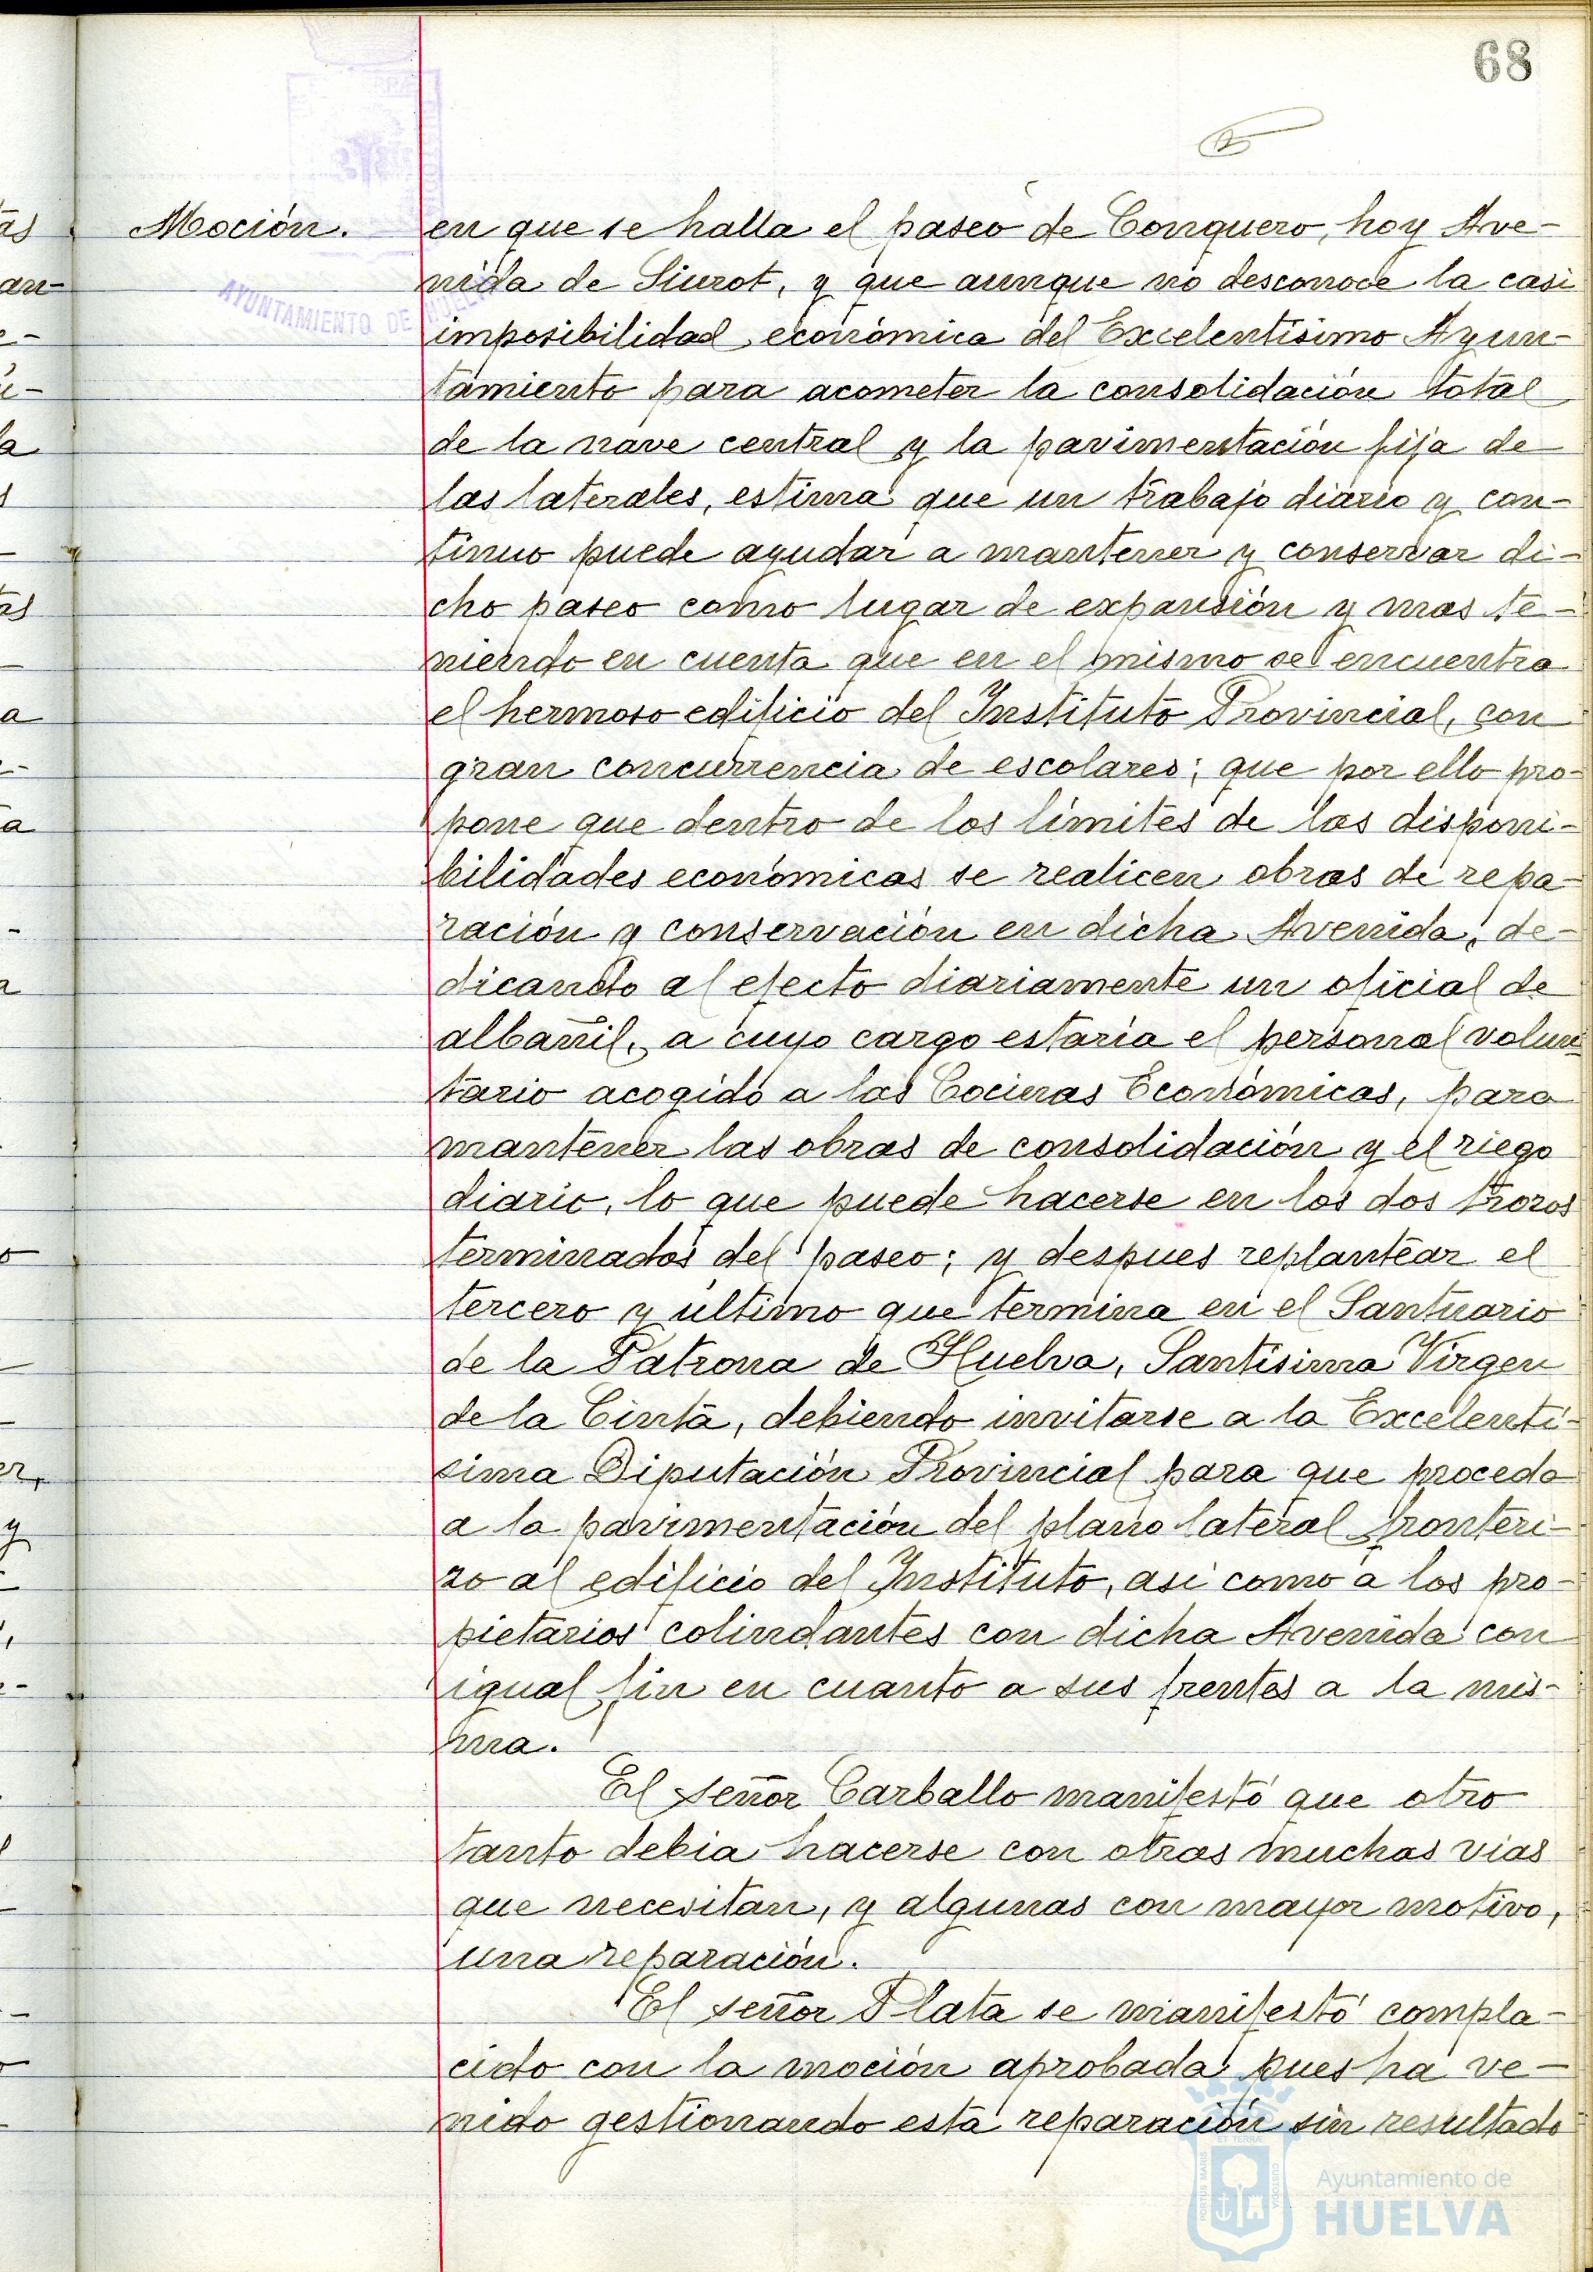 68
Moción.
en que se halla el paseo de Conquero, hoy Ave-
nida de Siurot, y que aunque no desconoce la casi
imposibilidad económica del Excelentísimo Ayun-
tamiento para acometer la consolidación total
de la nave central y la pavimentación fija de
las laterales, estima que un trabajo diario y con-
tinuo puede ayudar a mantener y conservar di-
cho paseo como lugar de expansión y mas te-
niendo en cuenta que en el mismo se encuentra
el hermoso edificio del Instituto Provincial, con
gran concurrencia de escolares; que por ello pro-
pone que dentro de los límites de las disponi-
bilidades económicas se realicen obras de repa-
ración y conservación en dicha Avenida, de-
dicando al efecto diariamente un oficial de
albañil, a cuyo cargo estaría el personal volun
tario acogido a las Cocinas Económicas, para
mantener las obras de consolidación y el riego
diario, lo que puede hacerse en los dos trozos
terminados del paseo; y despues replantear el
tercero y último que termina en el Santuario
de la Patrona de Huelva, Santísima Virgen
de la Cinta, debiendo invitarse a la Excelentí-
sima Diputación Provincial para que proceda
a la pavimentación del plano lateral fronteri-
zo al edificio del Instituto, asi como a los pro-
pietarios colindantes con dicha Avenida con
igual fin en cuanto a sus frentes a la mis-
ma.
El señor Carballo manifestó que otro
tanto debia hacerse con otras muchas vias
que necesitan, y algunas con mayor motivo,
una reparación.
El señor Plata se manifestó compla-
cido con la moción aprobada pues ha ve-
nido gestionando esta reparación sin resultado
AYUNTAMIENTO DE HUELVA
Ayuntamiento de
HUELVA